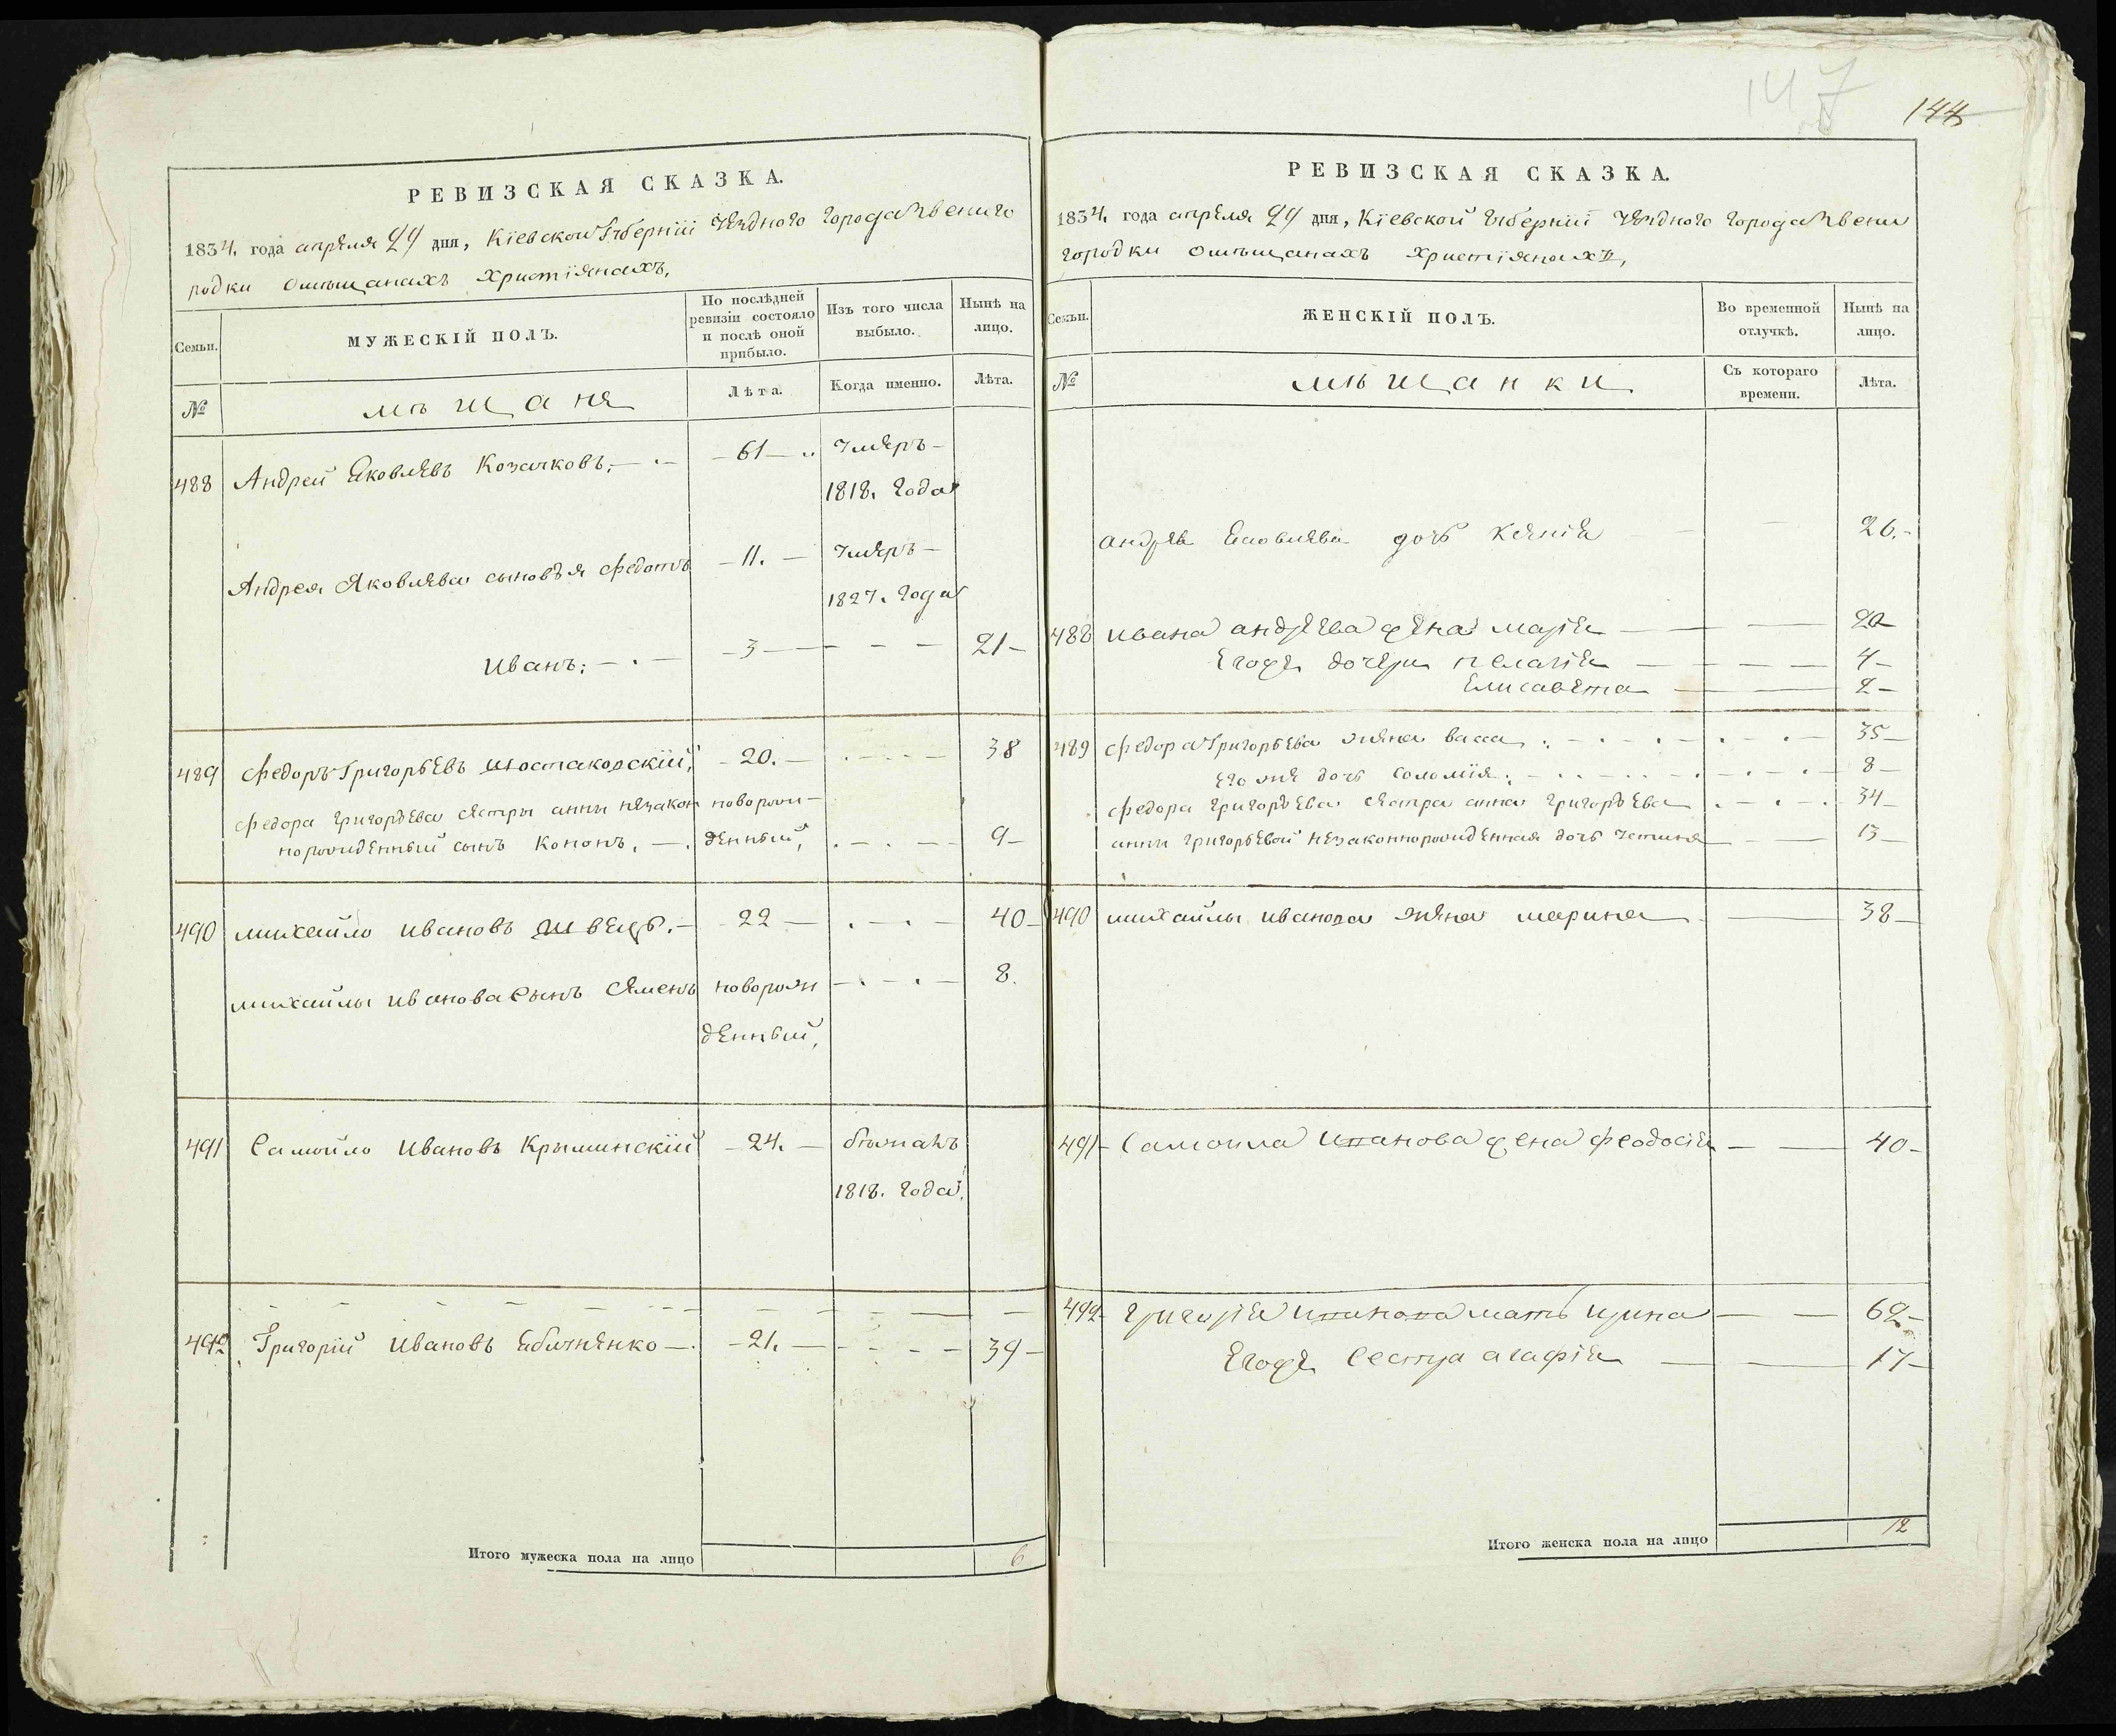 147
144
РЕВИЗСКАЯ СКАЗКА.
1834. года апрѣля 24 дня, Кіевской Губерніи Уѣзднаго города Звениго
родки о мѣщанахъ христіянахъ,
Семьи.
МУЖЕСКІЙ ПОЛЪ.
По послѣдней ревизіи состояло и послѣ оной прибыло.
Изъ того числа выбыло.
Нынѣ на лицо.
№
мѣщане
Лѣта.
Когда именно.
Лѣта.
488 Андрей Яковлевъ Козачковъ. — 61 — умеръ —
1818. года
Андрея Яковлева сыновья Федотъ — 11. — умеръ —
1827. года
Иванъ. — 3 — 21 —
489 Федоръ Григорьевъ Шостаковскій, — 20. — 38
Федора Григорьева сестры анны незакон новорож —
норожденный сынъ Кононъ. — денный, 9 —
490 михайло Ивановъ Швецъ. — 22 — 40 —
михайлы Иванова сынъ Семенъ новорож 8.
денный,
491 Самойло Ивановъ Крыминскій — 24. —
1818. года,
492 Григорій Ивановъ — 21. — 39 —
Итого мужеска пола на лицо 6
РЕВИЗСКАЯ СКАЗКА.
1834. года апрѣля 24 дня, Кіевской Губерніи Уѣзднаго города Звени
городки о мѣщанахъ христіянахъ,
Семьи.
ЖЕНСКІЙ ПОЛЪ.
Во временной отлучкѣ.
Нынѣ на лицо.
№
мѣщанки
Съ котораго времени.
Лѣта.
андрея Яковлева дочь Ксенія 26. —
488 ивана андреева жена марія 20
Егоже дочери пелагія 4 —
Елисавета 2 —
489 Федора Григорьева жена васса 35 —
его же дочь Соломія 8 —
Федора Григорьева сестра анна Григорьева 34 —
анны Григорьевой незаконнорожденная дочь Устиня 13 —
490 михайлы Иванова жена марина 38 —
491 Самоила Иванова жена феодосія 40 —
492 Григорія Иванова мать ирина 62 —
Егоже сестра агафія 17 —
Итого женска пола на лицо 12